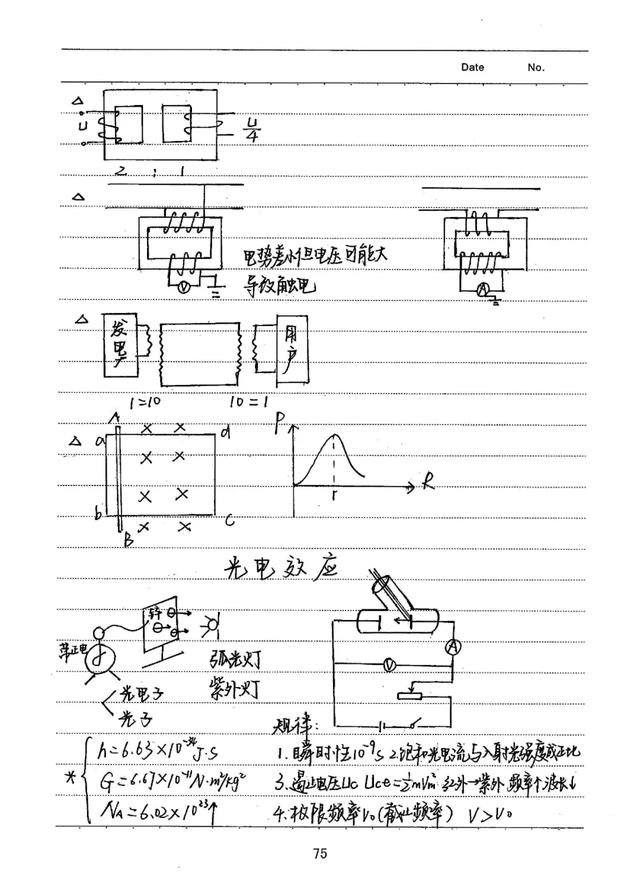 Date No.
U U/4
2 : 1
电势差小但电压可能大
V A
导致触电
发电厂 用户
1=10 10=1
A P
a × × d
× ×
× × r R
b × × c
B
光电效应
锌
带正电 弧光灯 A
紫外灯 V
光电子
光子
规律:
h=6.63×10⁻³⁴J·s 1.瞬时性10⁻⁹s 2.饱和光电流与入射光强度成正比
* G=6.67×10⁻¹¹N·m²/kg² 3.遏止电压Uc Uce=½mVm² 红外→紫外 频率↑波长↓
NA=6.02×10²³↑ 4.极限频率ν₀(截止频率) ν>ν₀
75